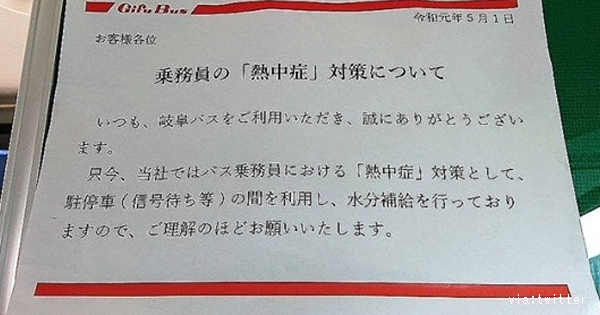 Gifu Bus
令和元年５月１日
お客様各位
乗務員の「熱中症」対策について
いつも、岐阜バスをご利用いただき、誠にありがとうござい
ます。
只今、当社ではバス乗務員における「熱中症」対策として、
駐停車（信号待ち等）の間を利用し、水分補給を行っており
ますので、ご理解のほどお願いいたします。
via:twitter